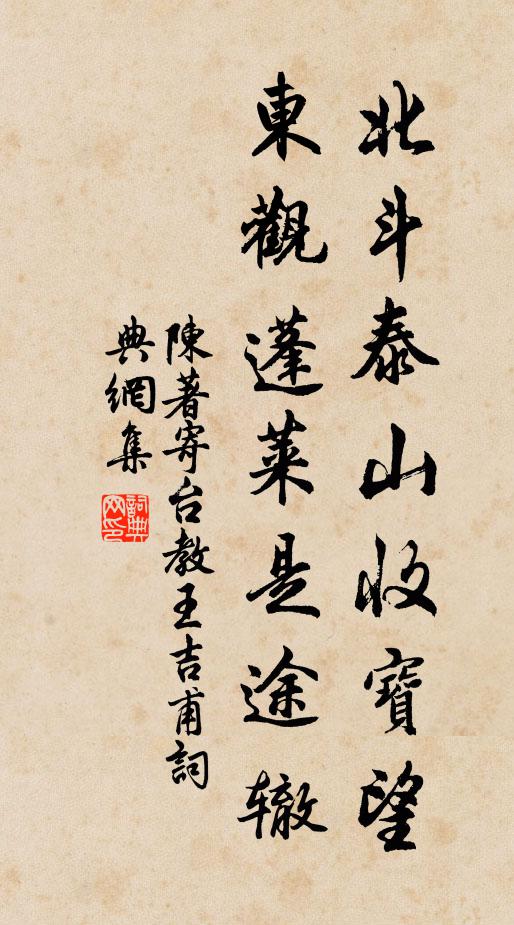 北斗泰山收寶望
東觀蓬萊是途辙
陳著寄台教王吉甫詞
典網集
詞典网印